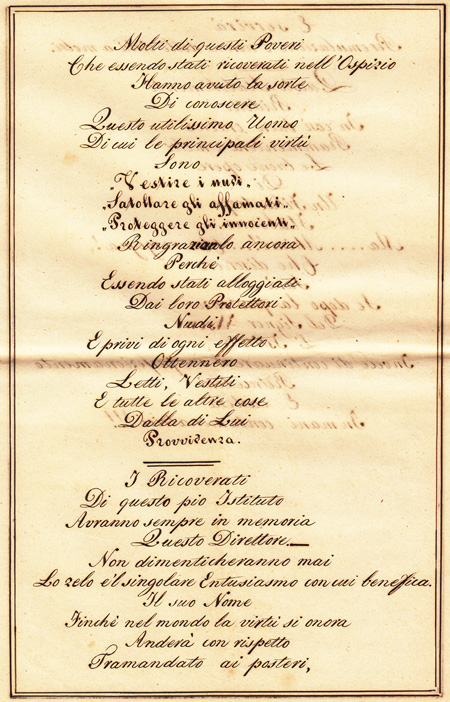 Molti di questi Poveri
Che essendo stati ricoverati nell'Ospizio
Hanno avuto la sorte
Di conoscere
Questo utilissimo Uomo
Di cui le principali virtú
Sono
„Vestire i nudi„
„Satollare gli affamati„
„Proteggere gli innocenti„
Ringrazialo ancora
Perché
Essendo stati alloggiati
Dai loro Protettori
Nudi
E privi di ogni effetto
Ottennero
Letti, Vestiti
E tutte le altre cose
Dalla di Lui
Provvidenza.
I Ricoverati
Di questo pio Istituto
Avranno sempre in memoria
Questo Direttore.
Non dimenticheranno mai
Lo zelo e'l singolare Entusiasmo con cui benefica.
Il suo Nome
Finchè nel mondo la virtù si onora
Anderà con rispetto
Tramandato ai posteri,